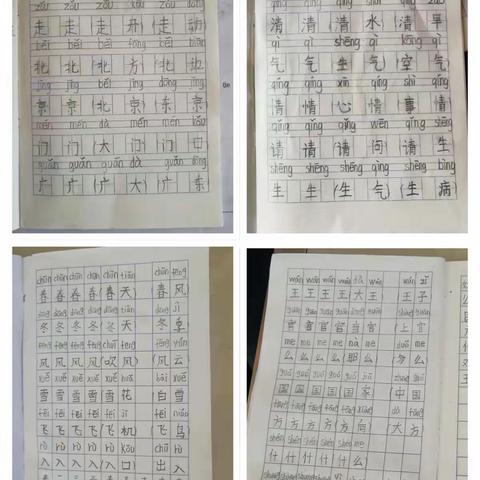 zǒu zǒu zǒu kāi zǒu dòng
走 走 (走 开) (走 动
běi běi běi fāng běi biān
北 北 (北 方) (北 边
jīng jīng běi jīng dōng jīng
京 京 (北 京) (东 京
mén mén dà mén mén kǒu
门 门 (大 门) (门 口
guǎng guǎng guǎng dà guǎng dōng
广 广 (广 大) (广 东
qīng qīng qīng shuǐ qīng zǎo
清 清 (清 水) (清 早
qì qì shēng qì kōng qì
气 气 (生 气) (空 气
qíng qíng xīn qíng shì qíng
情 情 (心 情) (事 情
qǐng qǐng qǐng wèn qǐng shēng
请 请 (请 问) (请 生
shēng shēng shēng qì shēng bìng
生 生 (生 气) (生 病
chūn chūn chūn chūn chūn tiān chūn fēng
春 春 春 春 (春 天) (春 风
dōng dōng dōng dōng dōng tiān dōng jì
冬 冬 冬 冬 (冬 天) (冬 季
fēng fēng fēng fēng chuī fēng fēng yún
风 风 风 风 (吹 风) (风 云
xuě xuě xuě xuě xuě huā bái xuě
雪 雪 雪 雪 (雪 花) (白 雪
fēi fēi fēi fēi fēi jī fēi niǎo
飞 飞 飞 飞 (飞 机) (飞 鸟
rù rù rù rù rù kǒu chū rù
入 入 入 入 (入 口) (出 入
王 王 王 王 大 王) (王 子
官 官 官 官 当 官) (上 官
me me me me nà me duō me
么 么 么 么 (那 么) (多 么
guó guó guó guó guó jiā zhōng guó
国 国 国 国 国 家 (中 国
fāng fāng fāng fāng fāng xiàng dà fāng
方 方 方 方 方 向) (大 方
shén shén shén shén shén me
什 什 什 什 (什 么)